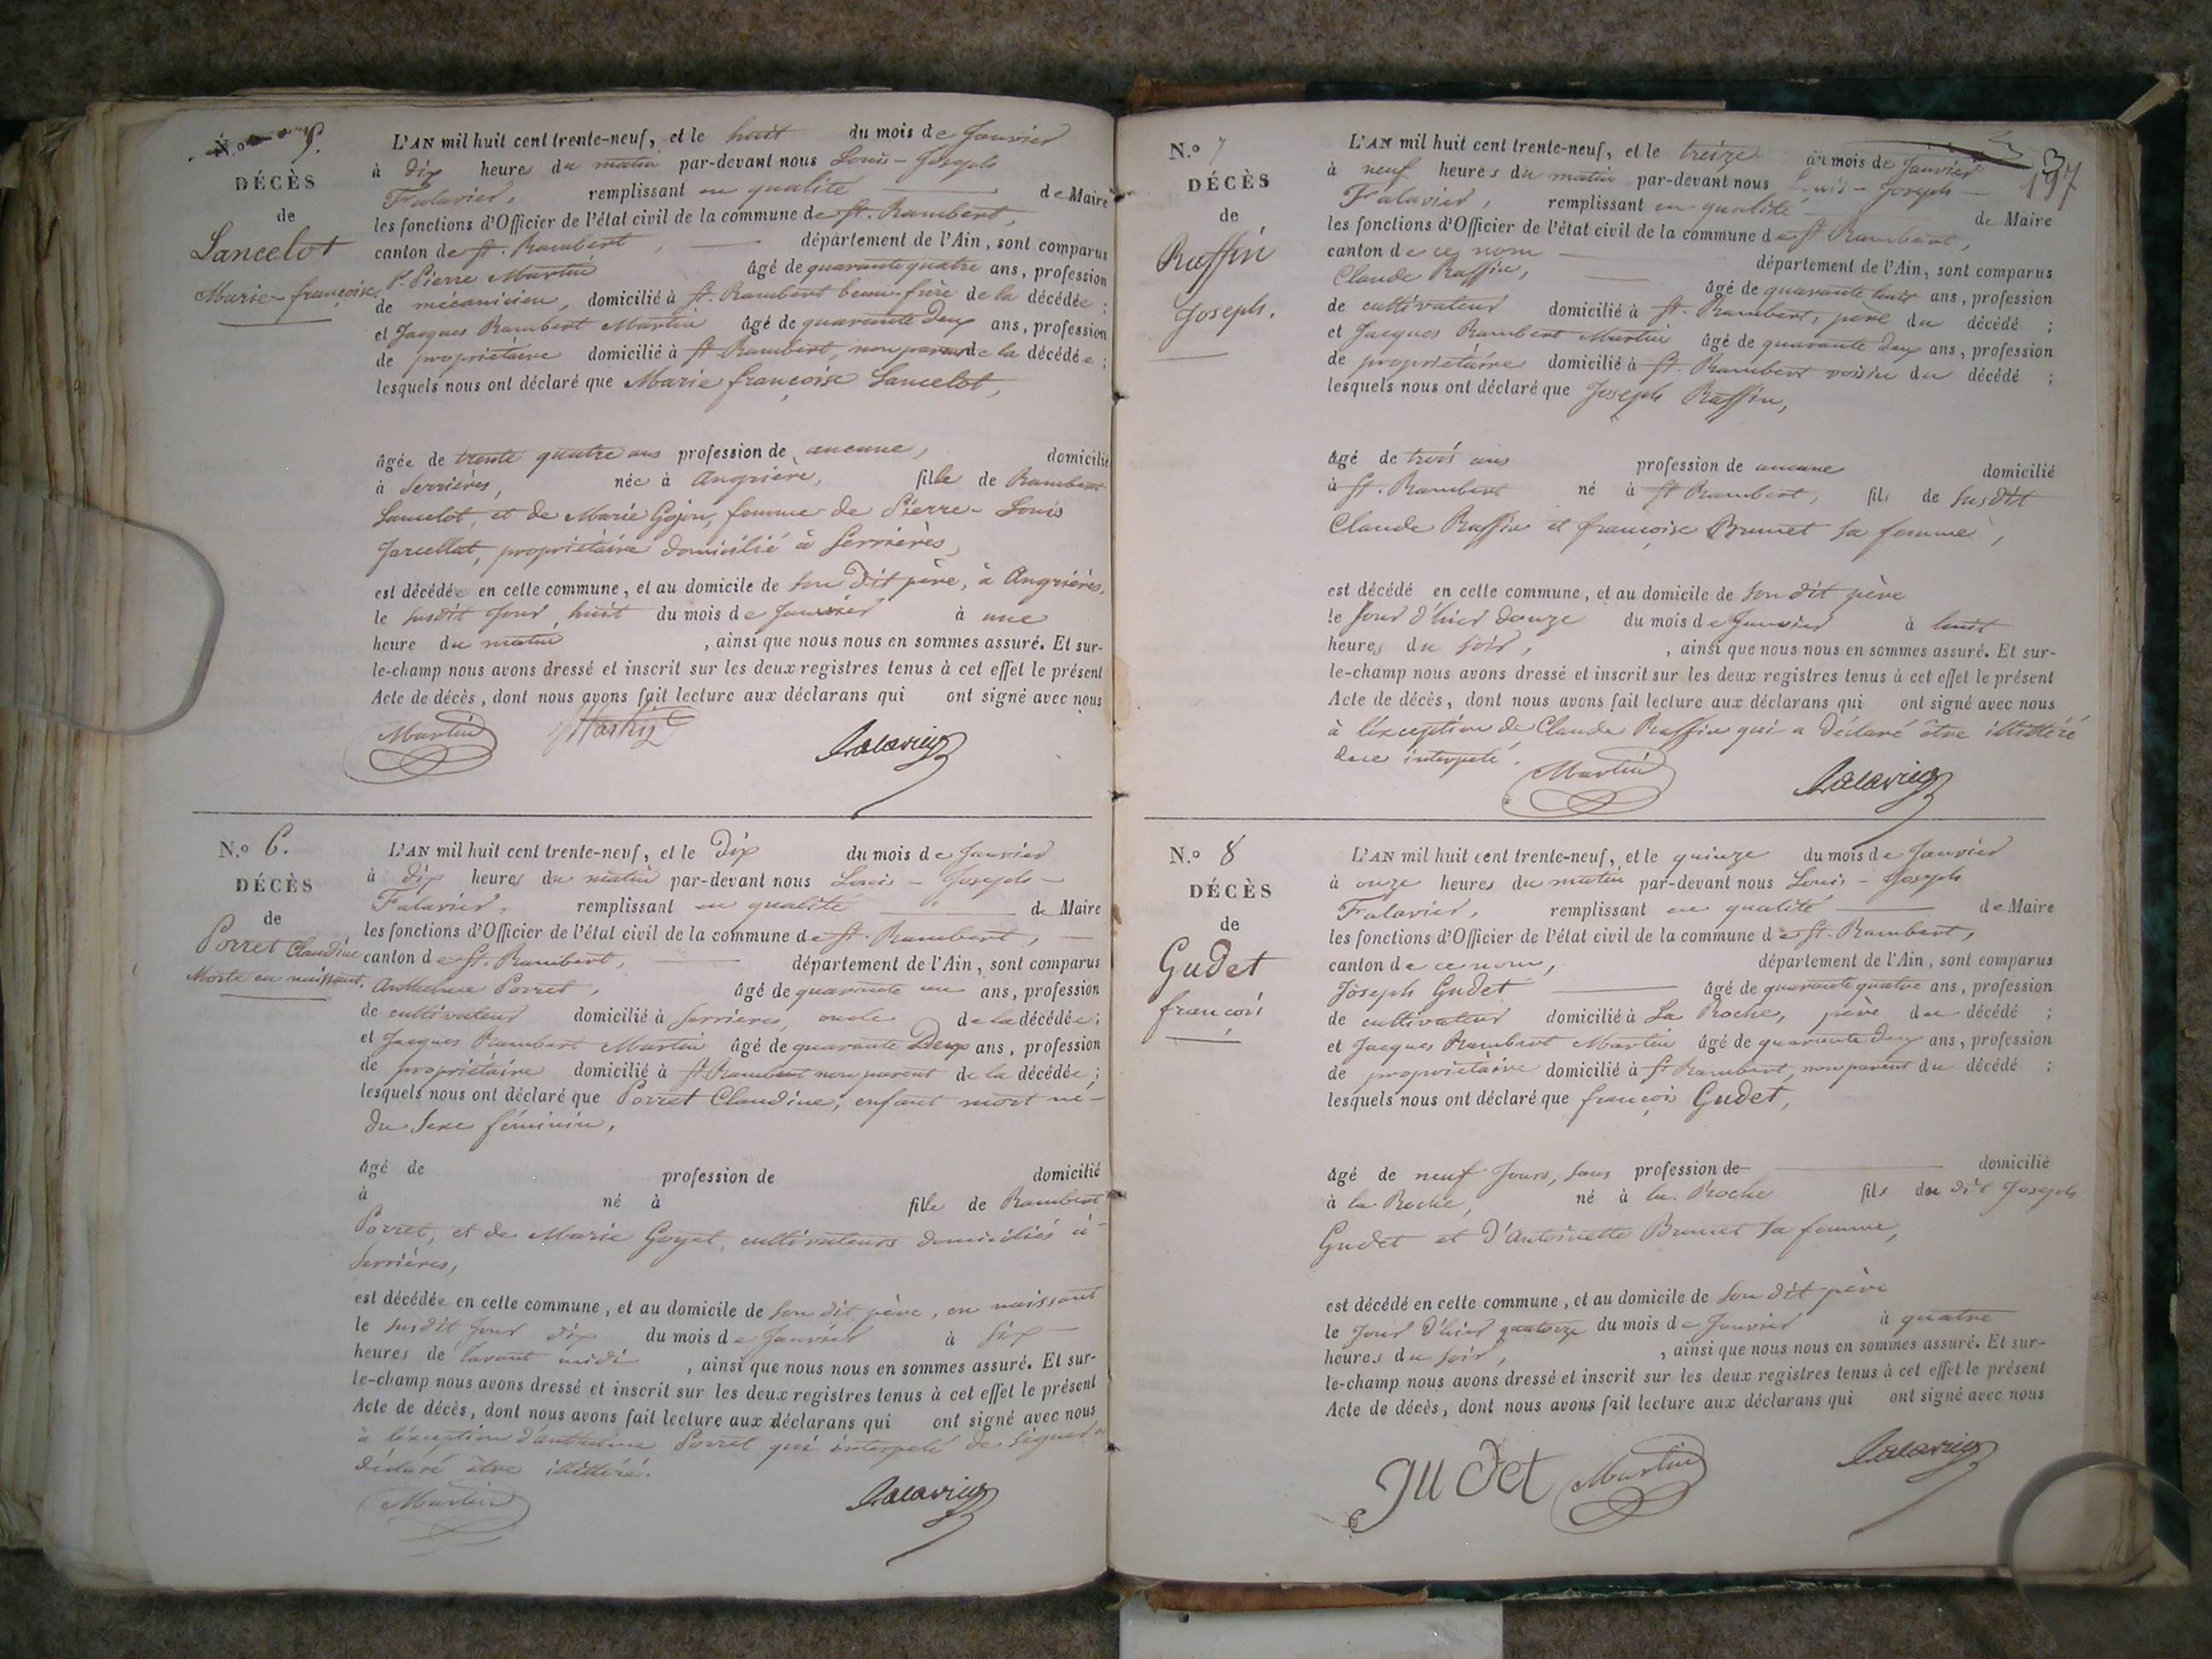 N.o 5.
DÉCÈS
de
Lancelot
Marie-françoise.
L'AN mil huit cent trente-neuf, et le huit du mois de Janvier
à dix heures du matin par-devant nous Louis-Joseph
Falavier, remplissant en qualité de Maire
les fonctions d'Officier de l'état civil de la commune de St. Rambert,
canton de St. Rambert, département de l'Ain, sont comparus
Pierre Martin âgé de quarante quatre ans, profession
de mécanicien, domicilié à St. Rambert beau-frère de la décédée ;
et Jacques Rambert Martin âgé de quarante deux ans, profession
de propriétaire domicilié à St Rambert, non parent de la décédée ;
lesquels nous ont déclaré que Marie françoise Lancelot,
âgée de trente quatre ans profession de aucune, domicilié
à Serrières, née à Angrière, fille de Rambert
Lancelot, et de Marie Gojon, femme de Pierre-Louis
Jarcellat, propriétaire domicilié à Serrières,
est décédée en cette commune, et au domicile de son dit père, à Angrières,
le susdit jour huit du mois de Janvier à une
heure du matin , ainsi que nous nous en sommes assuré. Et sur-
le-champ nous avons dressé et inscrit sur les deux registres tenus à cet effet le présent
Acte de décès, dont nous avons fait lecture aux déclarans qui ont signé avec nous
Martin Martin Falavier
N.o 6.
DÉCÈS
de
Porret Claudine
Morte en naissant.
L'AN mil huit cent trente-neuf, et le dix du mois de Janvier
à dix heures du matin par-devant nous Louis-Joseph-
Falavier, remplissant en qualité de Maire
les fonctions d'Officier de l'état civil de la commune de St. Rambert,
canton de St. Rambert, département de l'Ain, sont comparus
Anthelme Porret, âgé de quarante un ans, profession
de cultivateur domicilié à Serrieres, oncle de la décédée ;
et Jacques Rambert Martin âgé de quarante Deux ans, profession
de propriétaire domicilié à St Rambert non parent de la décédée ;
lesquels nous ont déclaré que Porret Claudine, enfant mort né-
du sexe féminin,
âgé de profession de domicilié
à né à fille de Rambert
Porret, et de Marie Goyet, cultivateurs domiciliés à-
Serrières,
est décédée en cette commune, et au domicile de son dit père, en naissant
le susdit jour dix du mois de Janvier à six
heures de l'avant midi , ainsi que nous nous en sommes assuré. Et sur-
le-champ nous avons dressé et inscrit sur les deux registres tenus à cet effet le présent
Acte de décès, dont nous avons fait lecture aux déclarans qui ont signé avec nous
à l'exception d'anthelme Porret qui interpelé de signer a
déclaré être illittéré.
Martin Falavier
197
N.o 7
DÉCÈS
de
Raffin
Joseph.
L'AN mil huit cent trente-neuf, et le treize du mois de Janvier
à neuf heures du matin par-devant nous Louis-Joseph-
Falavier, remplissant en qualité de Maire
les fonctions d'Officier de l'état civil de la commune de St Rambert,
canton de ce nom département de l'Ain, sont comparus
Claude Raffin, âgé de quarante huit ans, profession
de cultivateur domicilié à St. Rambert, père du décédé ;
et Jacques Rambert Martin âgé de quarante deux ans, profession
de propriétaire domicilié à St. Rambert voisin du décédé ;
lesquels nous ont déclaré que Joseph Raffin,
âgé de trois ans profession de aucune domicilié
à St. Rambert né à St Rambert, fils de susdit
Claude Raffin et françoise Brunet sa femme,
est décédé en cette commune, et au domicile de son dit père
le jour d'hier douze du mois de Janvier à huit
heures du soir, , ainsi que nous nous en sommes assuré. Et sur-
le-champ nous avons dressé et inscrit sur les deux registres tenus à cet effet le présent
Acte de décès, dont nous avons fait lecture aux déclarans qui ont signé avec nous
à l'exception de Claude Raffin qui a déclaré être illittéré
de ce interpelé.
Martin Falavier
N.o 8
DÉCÈS
de
Gudet
françois
L'AN mil huit cent trente-neuf, et le quinze du mois de Janvier
à onze heures du matin par-devant nous Louis-Joseph
Falavier, remplissant en qualité de Maire
les fonctions d'Officier de l'état civil de la commune de St. Rambert,
canton de ce nom, département de l'Ain, sont comparus
Joseph Gudet âgé de quarante quatre ans, profession
de cultivateur domicilié à La Roche, père du décédé ;
et Jacques Rambert Martin âgé de quarante deux ans, profession
de propriétaire domicilié à St Rambert, non parent du décédé ;
lesquels nous ont déclaré que françois Gudet,
âgé de neuf jours, sans profession de domicilié
à la Roche, né à la Roche fils du dit Joseph
Gudet et d'Antoinette Brunet sa femme,
est décédé en cette commune, et au domicile de son dit père
le jour d'hier quatorze du mois de Janvier à quatre
heures du soir, , ainsi que nous nous en sommes assuré. Et sur-
le-champ nous avons dressé et inscrit sur les deux registres tenus à cet effet le présent
Acte de décès, dont nous avons fait lecture aux déclarans qui ont signé avec nous
GUdet Martin Falavier